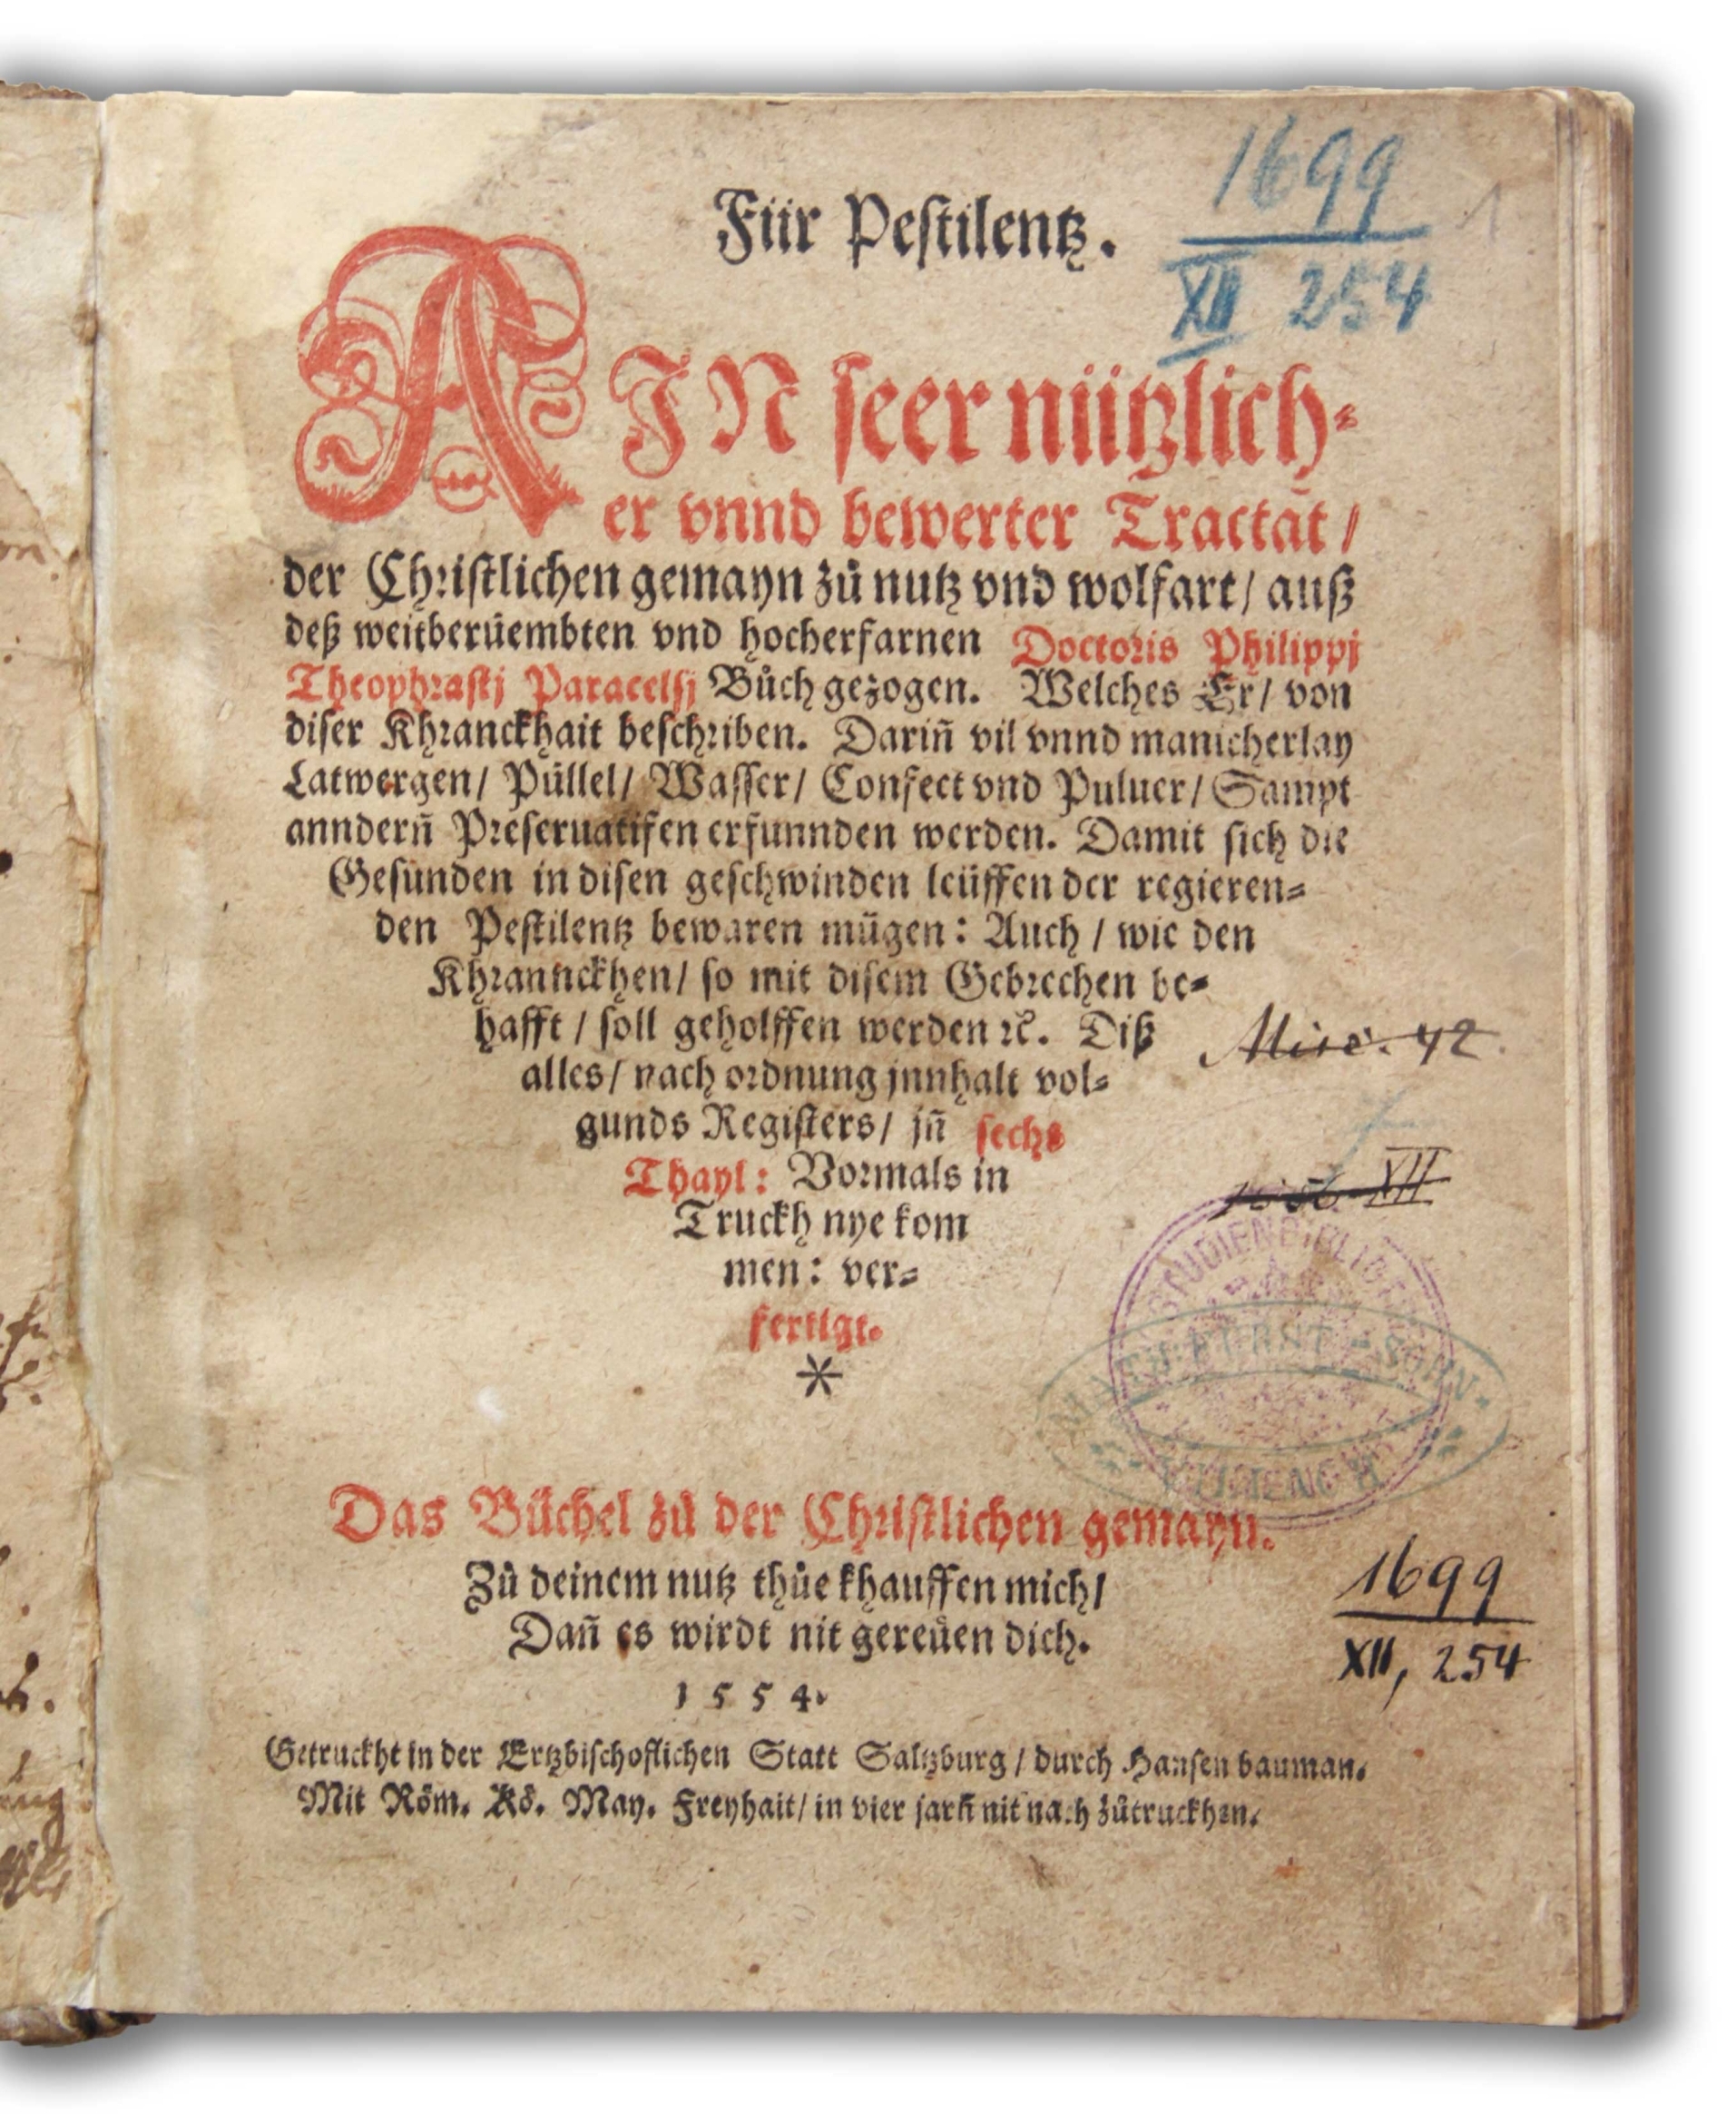 1699
XII 254
1
Für Pestilentz.
AIN seer nützlich-
er vnnd bewerter Tractat /
der Christlichen gemayn zů nutz vnd wolfart / auß
deß weitberüembten vnd hocherfarnen Doctoris Philippj
Theophrastj Paracelsj Bůch gezogen. Welches Er / von
diser Khranckhait beschriben. Dariñ vil vnnd manicherlay
Latwergen / Püllel / Wasser / Confect vnd Puluer / Sampt
annderñ Preseruatifen erfunnden werden. Damit sich die
Gesunden in disen geschwinden leüffen der regieren-
den Pestilentz bewaren mügen: Auch / wie den
Khrannckhen / so mit disem Gebrechen be-
hafft / soll geholffen werden ꝛc. Diß
Misc. 42.
alles / nach ordnung jnnhalt vol-
gunds Registers / jñ sechs
Thayl: Vormals in
XII
Truckh nye kom
men: ver-
fertigt.
*
STUDIENBIBLIOT
SOHN
Das Büchel zů der Christlichen gemayn.
Zů deinem nutz thůe khauffen mich /
Dañ es wirdt nit gereüen dich.
1699
XII, 254
1554.
Getruckht in der Ertzbischoflichen Statt Saltzburg / durch Hansen bauman.
Mit Röm. Kö. May. Freyhait / in vier jarñ nit nach zůtruckhen.